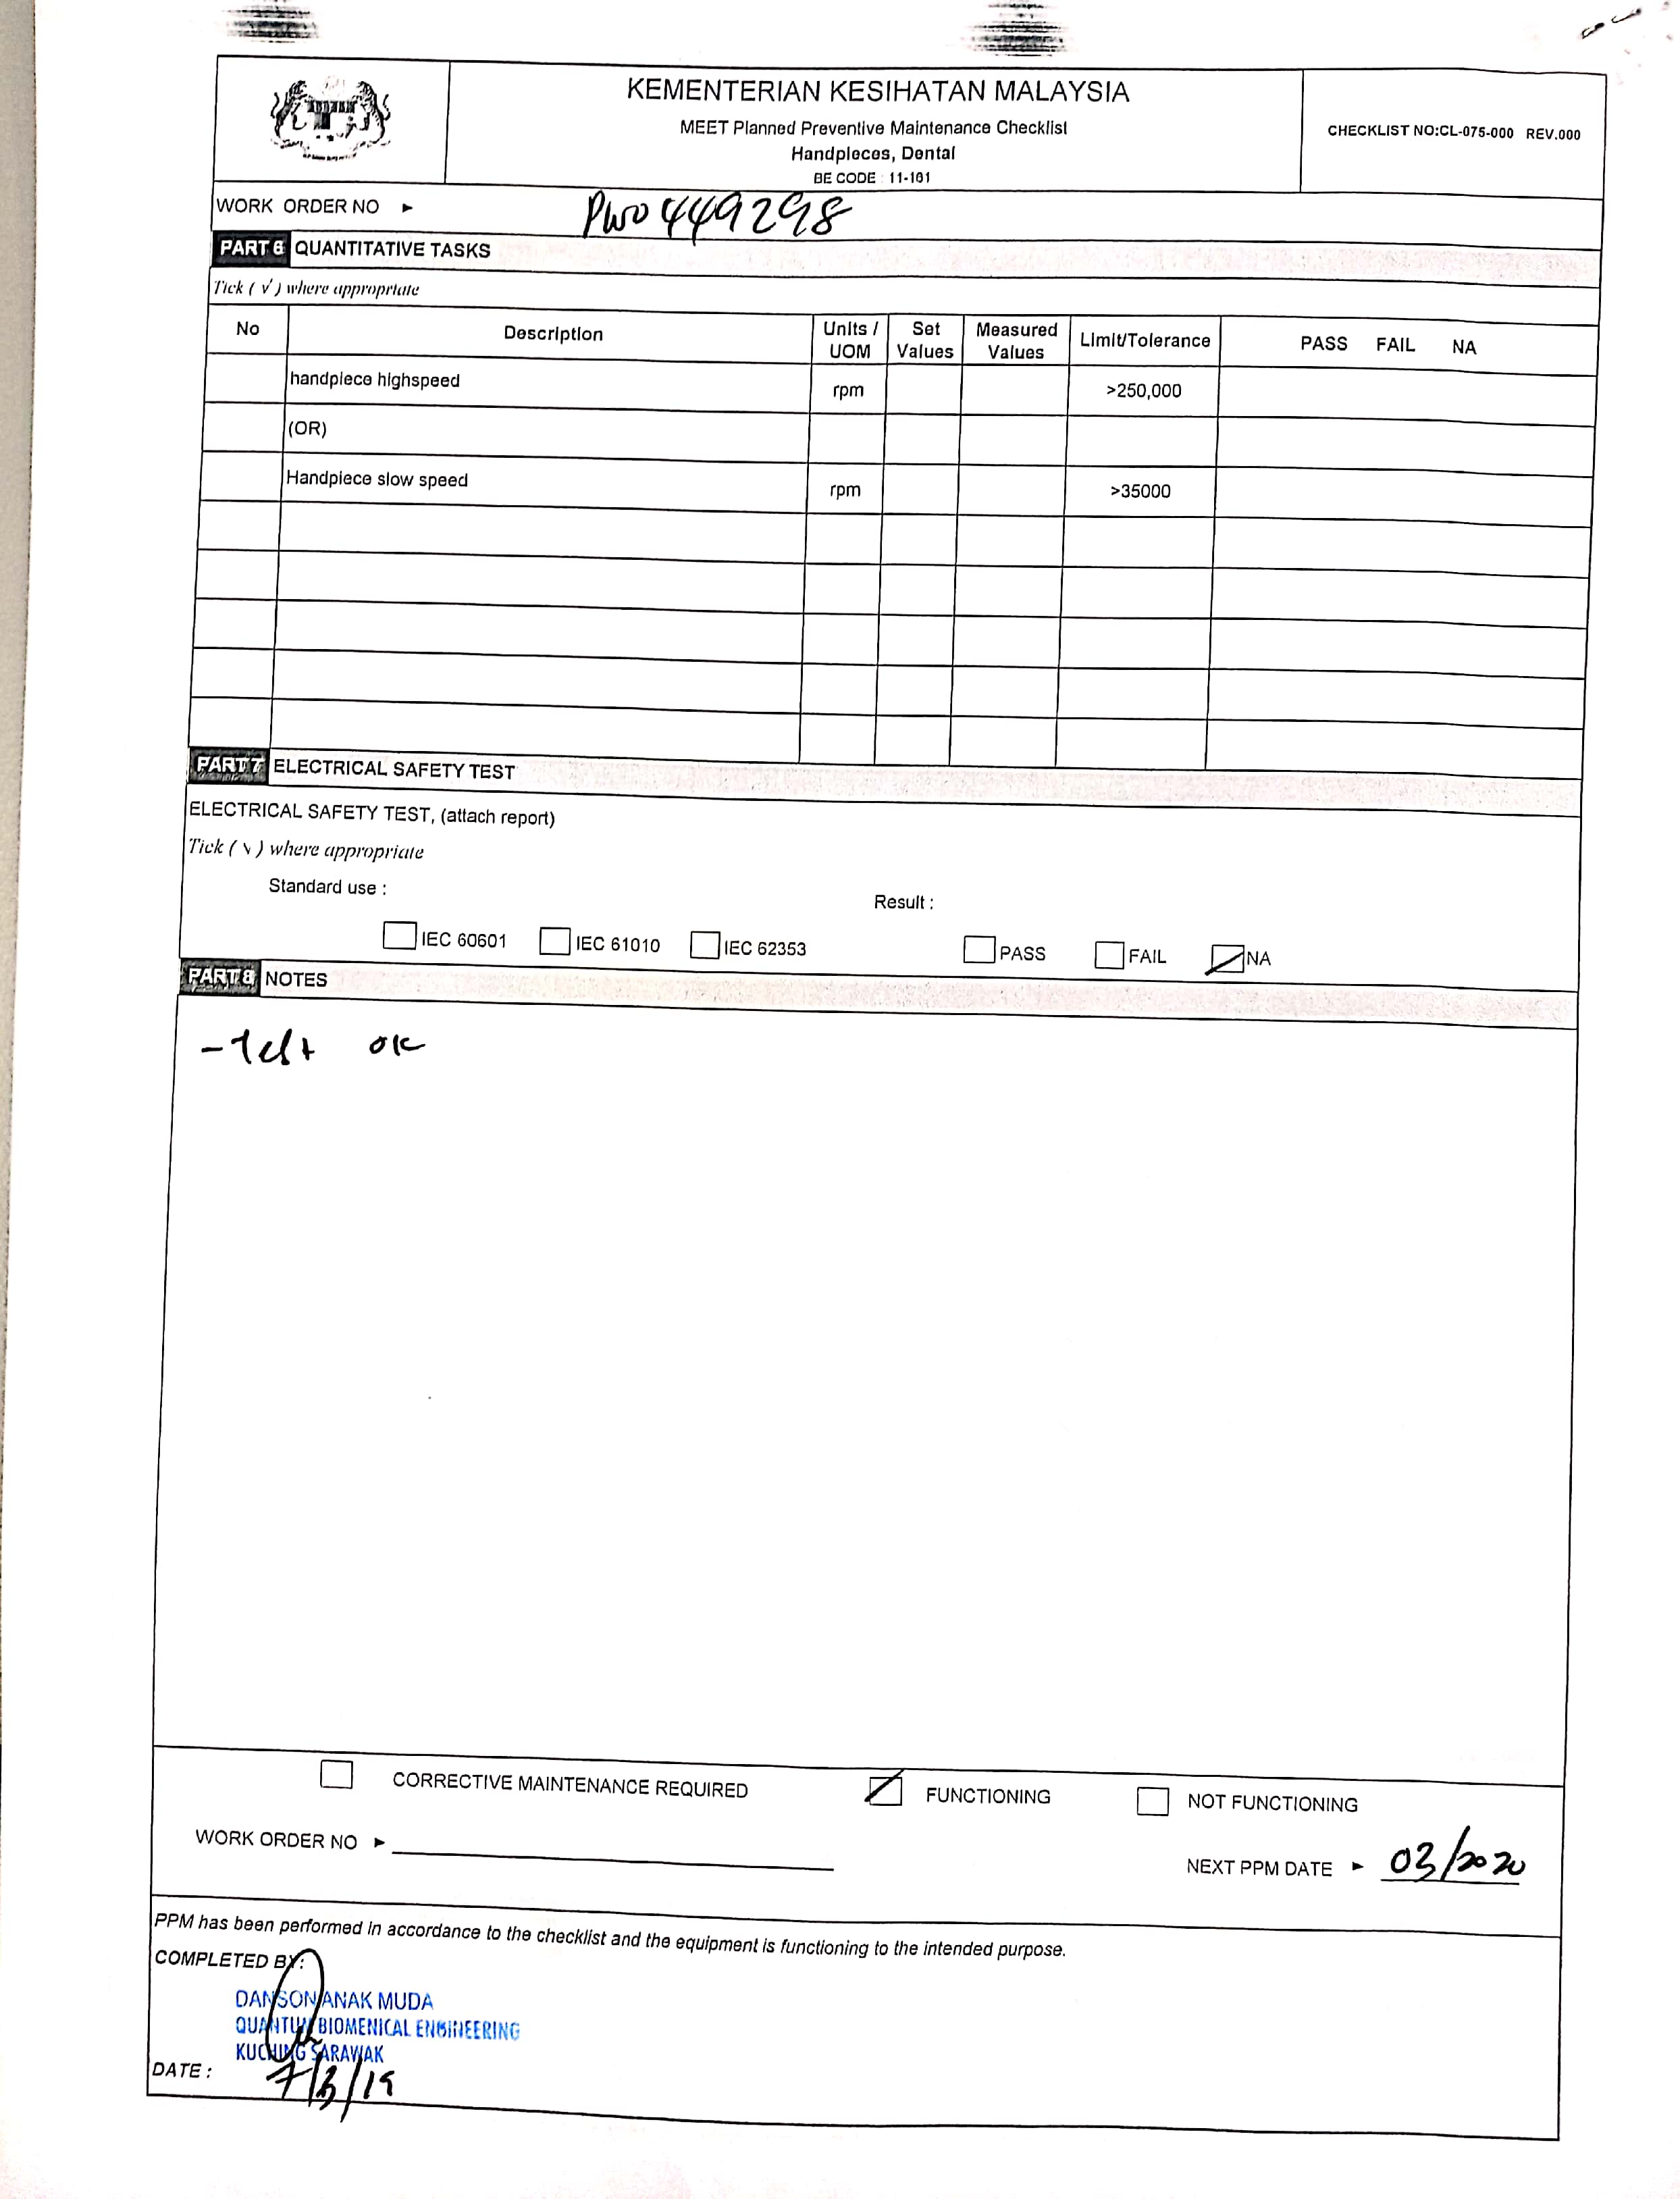 KEMENTERIAN KESIHATAN MALAYSIA
MEET Planned Preventive Maintenance Checklist
Handpieces, Dental
BE CODE : 11-101
CHECKLIST NO:CL-075-000 REV.000
WORK ORDER NO ► PWO449298
PART 6 QUANTITATIVE TASKS
Tick ( √ ) where appropriate
No Description Units / UOM Set Values Measured Values Limit/Tolerance PASS FAIL NA
handpiece highspeed rpm >250,000
(OR)
Handpiece slow speed rpm >35000
PART 7 ELECTRICAL SAFETY TEST
ELECTRICAL SAFETY TEST, (attach report)
Tick ( √ ) where appropriate
Standard use : Result :
IEC 60601 IEC 61010 IEC 62353 PASS FAIL NA
PART 8 NOTES
- Test OK
CORRECTIVE MAINTENANCE REQUIRED FUNCTIONING NOT FUNCTIONING
WORK ORDER NO ► NEXT PPM DATE ► 03/2020
PPM has been performed in accordance to the checklist and the equipment is functioning to the intended purpose.
COMPLETED BY:
DANSON ANAK MUDA
QUANTUM BIOMENICAL ENGINEERING
KUCHING SARAWAK
DATE : 7/3/19